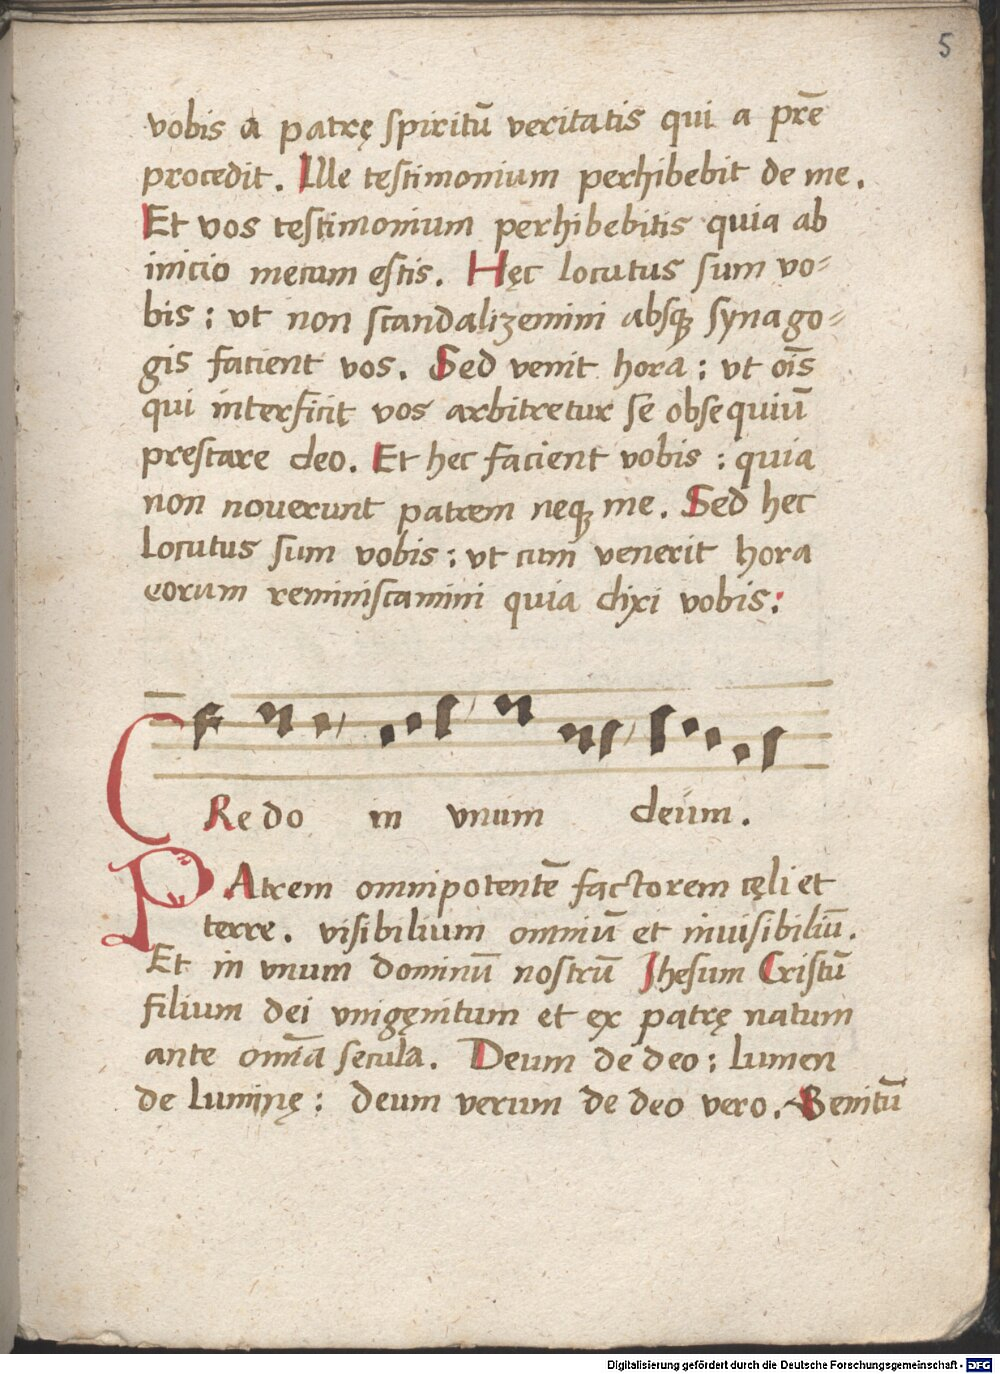 5
vobis a patrę spiritū veritatis qui a pr̄e
procedit. Ille testimonium perhibebit de me.
Et vos testimonium perhibebitis quia ab
inicio mecum estis. Hęc locutus sum vo-
bis : vt non scandalizemini absqꝫ synago-
gis facient vos. Sed venit hora : vt oīs
qui interficit vos arbitretur se obsequiū
prestare deo. Et hec facient vobis : quia
non nouerunt patrem neqꝫ me. Sed hec
locutus sum vobis : vt cum venerit hora
eorum reminiscamini quia dixi vobis:
CRedo in vnum deum.
PAtrem omnipotentē factorem cęli et
terre. visibilium omniū et inuisibiliū.
Et in vnum dominū nostrū Jhesum Cristū
filium dei vnigęnitum et ex patrę natum
ante omīa secula. Deum de deo : lumen
de luminę : deum verum de deo vero. Genitū
Digitalisierung gefördert durch die Deutsche Forschungsgemeinschaft - DFG